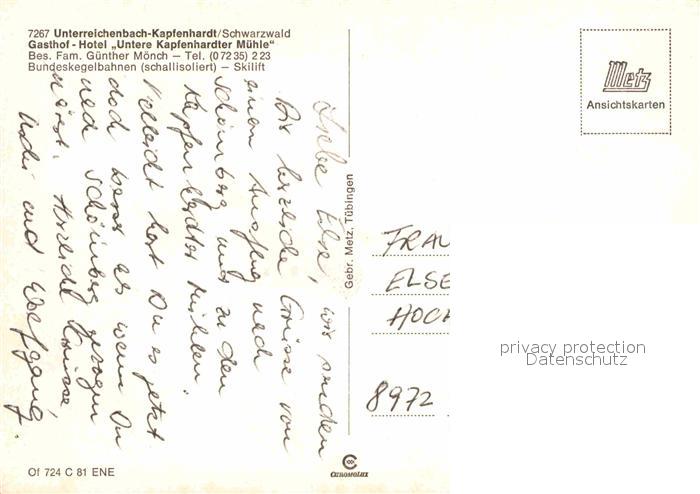 7267 Unterreichenbach-Kapfenhardt/Schwarzwald
Gasthof - Hotel „Untere Kapfenhardter Mühle"
Bes. Fam. Günther Mönch — Tel. (0 72 35) 2 23
Bundeskegelbahnen (schallisoliert) — Skilift
Liebe Else, wir senden
Dir herzliche Grüsse von
einem Ausflug nach
Schömberg und zu den
Kapfenhardter Mühlen.
Vielleicht hast Du es jetzt
doch besser als wenn Du
nach Schömberg gezogen
wärst. Herzliche Grüsse
und Wolfgang.
Gebr. Metz, Tübingen
Metz
Ansichtskarten
FRAU
ELSE
HOCH
8972
privacy protection
Datenschutz
Of 724 C 81 ENE
CHROMOLUX